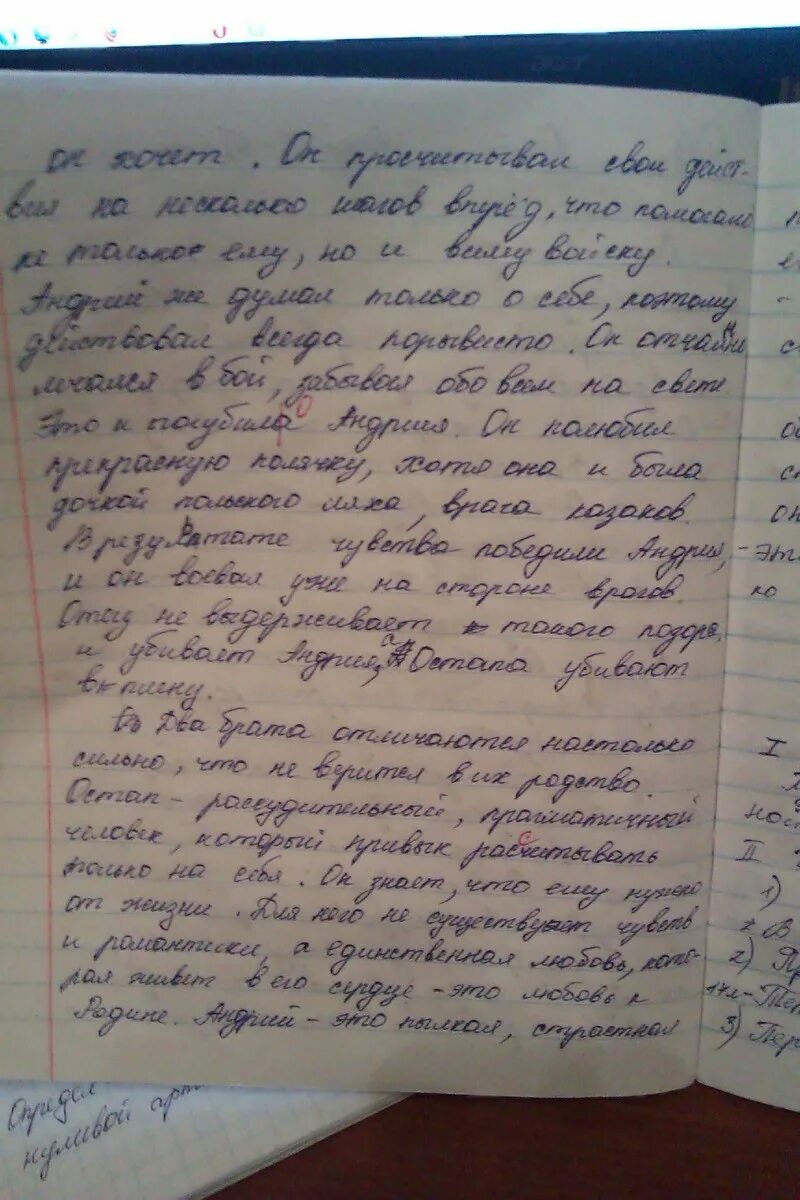 он хочет. Он просчитывал свои дейст-
вия на несколько шагов вперёд, что помогало
не только ему, но и всему войску.
Андрий же думал только о себе, поэтому
действовал всегда порывисто. Он отчаянно
мчался в бой, забывая обо всём на свете
Это и погубило Андрия. Он полюбил
прекрасную полячку, хотя она и была
дочкой польского ляха, врага козаков.
В результате чувства победили Андрия,
и он воевал уже на стороне врагов.
Отец не выдерживает такого позора,
и убивает Андрия, а Остапа убивают
в плену.
Два брата отличаются настолько
сильно, что не верится в их родство.
Остап - рассудительный, прагматичный
человек, который привык рассчитывать
только на себя. Он знает, что ему нужно
от жизни. Для него не существует чувств
и романтики, а единственная любовь, кото-
рая живёт в его сердце - это любовь к
Родине. Андрий - это пылкая, страстная
I
II
1)
2)
3) Пер
Определ
нуливой